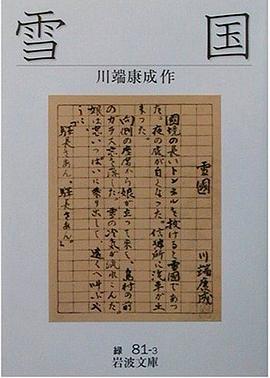 雪国
川端康成作
雪國
川端康成
國境の長いトンネルを抜けると雪國であつ
た。夜の底が白くなつた。信號所に汽車が止
まつた。
向側の座席から娘が立つて來て、島村の前
のガラス窓を落した。雪の冷氣が流れこんだ。
娘は窓いつぱいに乗り出して、遠くへ叫ぶや
うに、
「駅長さあん、駅長さあん。」
緑 81-3
岩波文庫